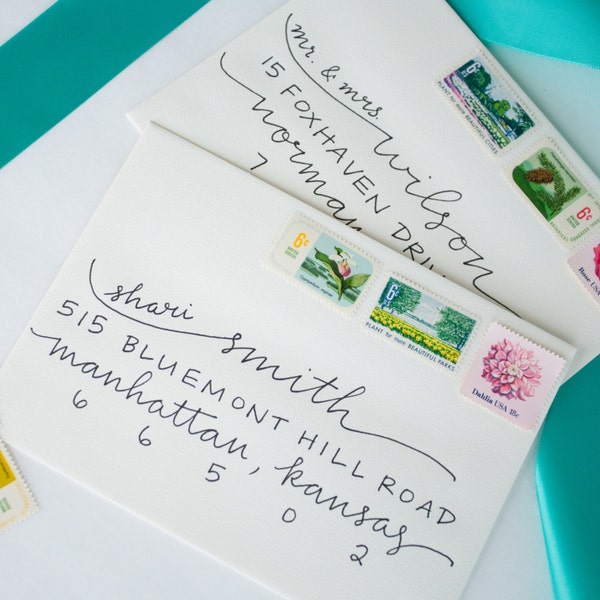 mr. & mrs. wilson
15 FOXHAVEN DRIV
norman
7
6c
PLANT for more BEAUTIFUL CITIES
6c
Rose USA
6c
6c U.S.
PLANT for more BEAUTIFUL PARKS
Dahlia USA 18c
shari smith
515 BLUEMONT HILL ROAD
manhattan, kansas
6 6 5 0 2